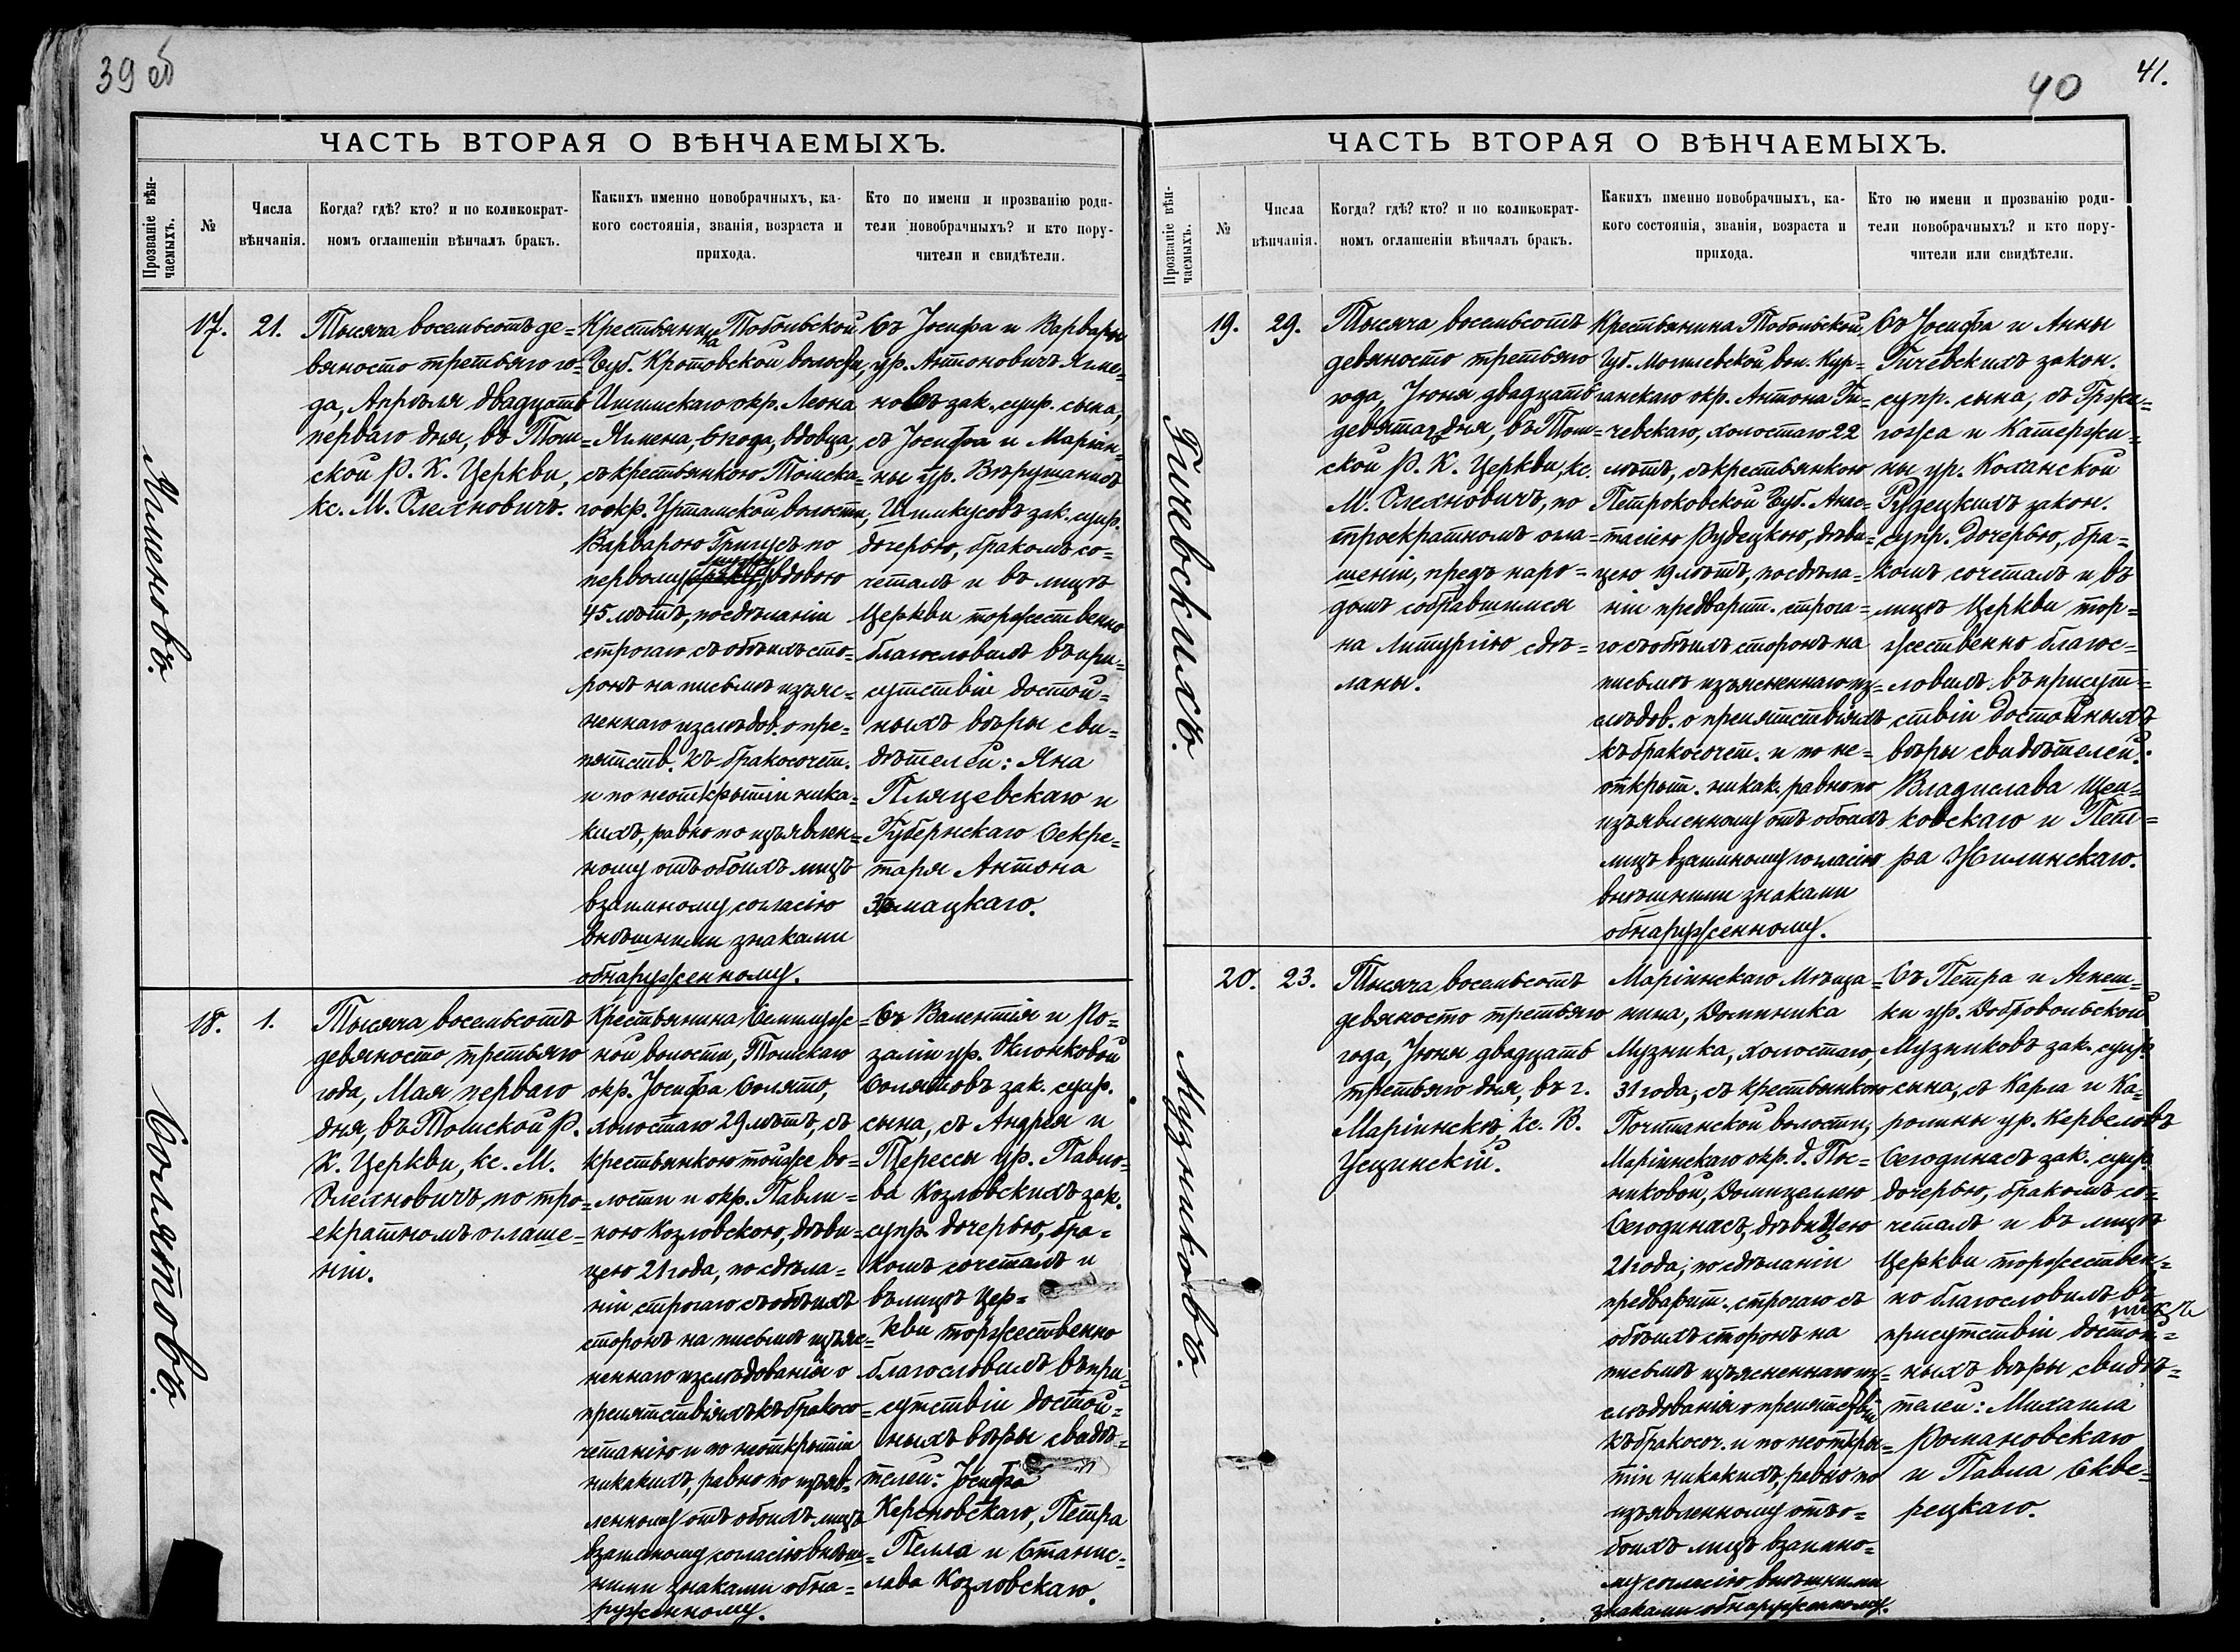 39 об
ЧАСТЬ ВТОРАЯ О ВѢНЧАЕМЫХЪ.
Прозваніе вѣн-
чаемыхъ.
№
Числа
вѣнчанія.
Когда? гдѣ? кто? и по коликократ-
номъ оглашеніи вѣнчалъ бракъ.
Какихъ именно новобрачныхъ, ка-
кого состоянія, званія, возраста и
прихода.
Кто по имени и прозванію роди-
тели новобрачныхъ? и кто пору-
чители и свидѣтели.
17.
21.
Тысяча восемьсотъ де=
вяносто третьяго го=
да, Апрѣля двадцать
перваго дня, въ Том=
ской Р. К. Церкви,
кс. М. Олехновичъ.
Крестьянина Тобольской
Губ. Кротовской волости,
Ишимскаго окр. Леона
Ялмена, 61 года, вдовца,
съ крестьянкою Томска=
го окр. Уртамской волости,
Варварою Григусъ по
первому вдовою
45 лѣтъ, по сдѣланіи
строгаго съ обѣихъ сто=
ронъ на письмѣ изъяс=
неннаго изслѣдов. о пре=
пятств. къ бракосочет.
и по неоткрытіи ника=
кихъ, равно по изъявлен=
ному отъ обоихъ лицъ
взаимному согласію
внѣшними знаками
обнаруженному.
Съ Іосифа и Варвары
ур. Антоновичъ Ялме=
новъ зак. супр. сына,
съ Іосифа и Маріан=
ны ур. Вѣрушанисъ
Шимкусовъ зак. супр.
дочерью, бракомъ со=
четалъ и въ лицѣ
Церкви торжественно
благословилъ въ при=
сутствіи достой=
ныхъ вѣры сви=
дѣтелей: Яна
Пляцевскаго и
Губернскаго Секре=
таря Антона
Зѣмацкаго.
Ялменовъ.
18.
1.
Тысяча восемьсотъ
девяносто третьяго
года, Мая перваго
дня, въ Томской Р.
К. Церкви, кс. М.
Олехновичъ, по тро=
екратномъ оглаше=
ніи.
Крестьянина Семилуж=
ной волости, Томскаго
окр. Іосифа Солято,
холостаго 29 лѣтъ, съ
крестьянкою тойже во=
лости и окр. Павли=
ною Козловскою, дѣви=
цею 21 года, по сдѣла=
ніи строгаго съ обѣихъ
сторонъ на письмѣ изъяс=
неннаго изслѣдованія о
препятствіяхъ къ бракосо=
четанію и по неоткрытіи
никакихъ, равно по изъяв=
ленному отъ обоихъ лицъ
взаимному согласію внѣш=
ними знаками обна=
руженному.
Съ Валентія и Ро=
заліи ур. Яблонковой
Солятовъ зак. супр.
сына, съ Андрея и
Терессы ур. Павло=
ва Козловскихъ зак.
супр. дочерью, бра=
комъ сочеталъ и
въ лицѣ Цер=
кви торжественно
благословилъ въ при=
сутствіи достой=
ныхъ вѣры свидѣ=
телей: Іосифа
Керсновскаго, Петра
Пелла и Станис=
лава Козловскаго.
Солятовъ.
40
41.
ЧАСТЬ ВТОРАЯ О ВѢНЧАЕМЫХЪ.
Прозваніе вѣн-
чаемыхъ.
№
Числа
вѣнчанія.
Когда? гдѣ? кто? и по коликократ-
номъ оглашеніи вѣнчалъ бракъ.
Какихъ именно новобрачныхъ, ка-
кого состоянія, званія, возраста и
прихода.
Кто по имени и прозванію роди-
тели новобрачныхъ? и кто пору-
чители или свидѣтели.
19.
29.
Тысяча, восемьсотъ
девяносто третьяго
года, Іюня двадцать
девятаго дня, въ Том=
ской Р. К. Церкви, кс.
М. Олехновичъ, по
троекратномъ огла=
шеніи, предъ наро=
домъ собравшимся
на Литургію сдѣ=
ланы.
Крестьянина Тобольской
Губ. Могилевской вол. Кур=
ганскаго окр. Антона Ги=
чевскаго, холостаго 22
лѣтъ, съ крестьянкою
Петроковской Губ. Анас=
тасіею Рудецкою, дѣви=
цею 19 лѣтъ, по сдѣла=
ніи предварит. строга=
го съ обѣихъ сторонъ на
письмѣ изъясненнаго из=
слѣдов. о препятствіяхъ
къ бракосочет. и по не=
открыт. никак. равно по
изъявленному отъ обоихъ
лицъ взаимному согласію
внѣшними знаками
обнаруженному.
Съ Іосифа и Анны
Гичевскихъ закон.
супр. сына, съ Гржи=
гожа и Катержи=
ны ур. Коханской
Рудецкихъ закон.
супр. дочерью, бра=
комъ сочеталъ и въ
лицѣ Церкви тор=
жественно благос=
ловилъ въ присут=
ствіи достойныхъ
вѣры свидѣтелей:
Владислава Щеп=
ковскаго и Пет=
ра Жилинскаго.
Гичевскихъ.
20.
23.
Тысяча восемьсотъ
девяносто третьяго
года, Іюня двадцать
третьяго дня, въ г.
Маріинскѣ, кс. В.
Усцинскій.
Маріинскаго Мѣща=
нина, Доминика
Музника, холостаго,
31 года, съ крестьянкою
Почитанской волости,
Маріинскаго окр. д. Пос=
никовой, Домицеллею
Сегодинасъ, дѣвицею
21 года, по сдѣланіи
предварит. строгаго съ
обѣихъ сторонъ на
письмѣ изъясненнаго из=
слѣдованія о препятствіи
къ бракосоч. и по неоткры=
тіи никакихъ, равно по
изъявленному отъ о=
боихъ лицъ взаимно=
му согласію внѣшними
знаками обнаруженному.
Съ Петра и Агнеш=
ки ур. Добровольской
Музниковъ зак. супр.
сына, съ Карла и Ка=
ролины ур. Кервеловъ
Сегодинасъ зак. супр.
дочерью, бракомъ со=
четалъ и въ лицѣ
Церкви торжествен=
но благословилъ въ
присутствіи достой=
ныхъ вѣры свидѣ=
телей: Михаила
Романовскаго
и Павла Скве=
рецкаго.
Музниковъ.